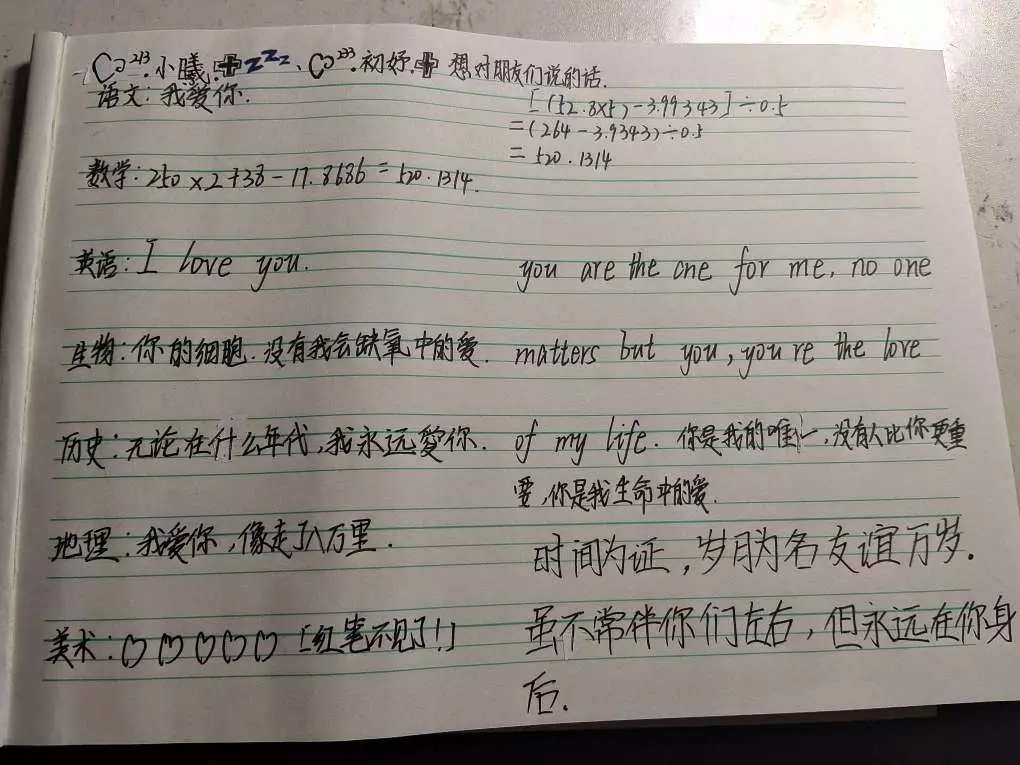 小曦.zzz、初妤. 想对朋友们说的话.
语文:我爱你.
数学:250×2+38-17.8686=520.1314.
英语:I love you.
生物:你的细胞.没有我会缺氧中的爱.
历史:无论在什么年代,我永远愛你.
地理:我爱你,像走了八万里.
美术:♡♡♡♡♡[红笔不见了!]
[(52.8×5)-3.99343]÷0.5
=(264-3.9343)÷0.5
=520.1314
you are the one for me, no one
matters but you, you're the love
of my life. 你是我的唯一,没有人比你更重
要,你是我生命中的爱.
时间为证,岁月为名友谊万岁.
虽不常伴你们左右,但永远在你身
后.